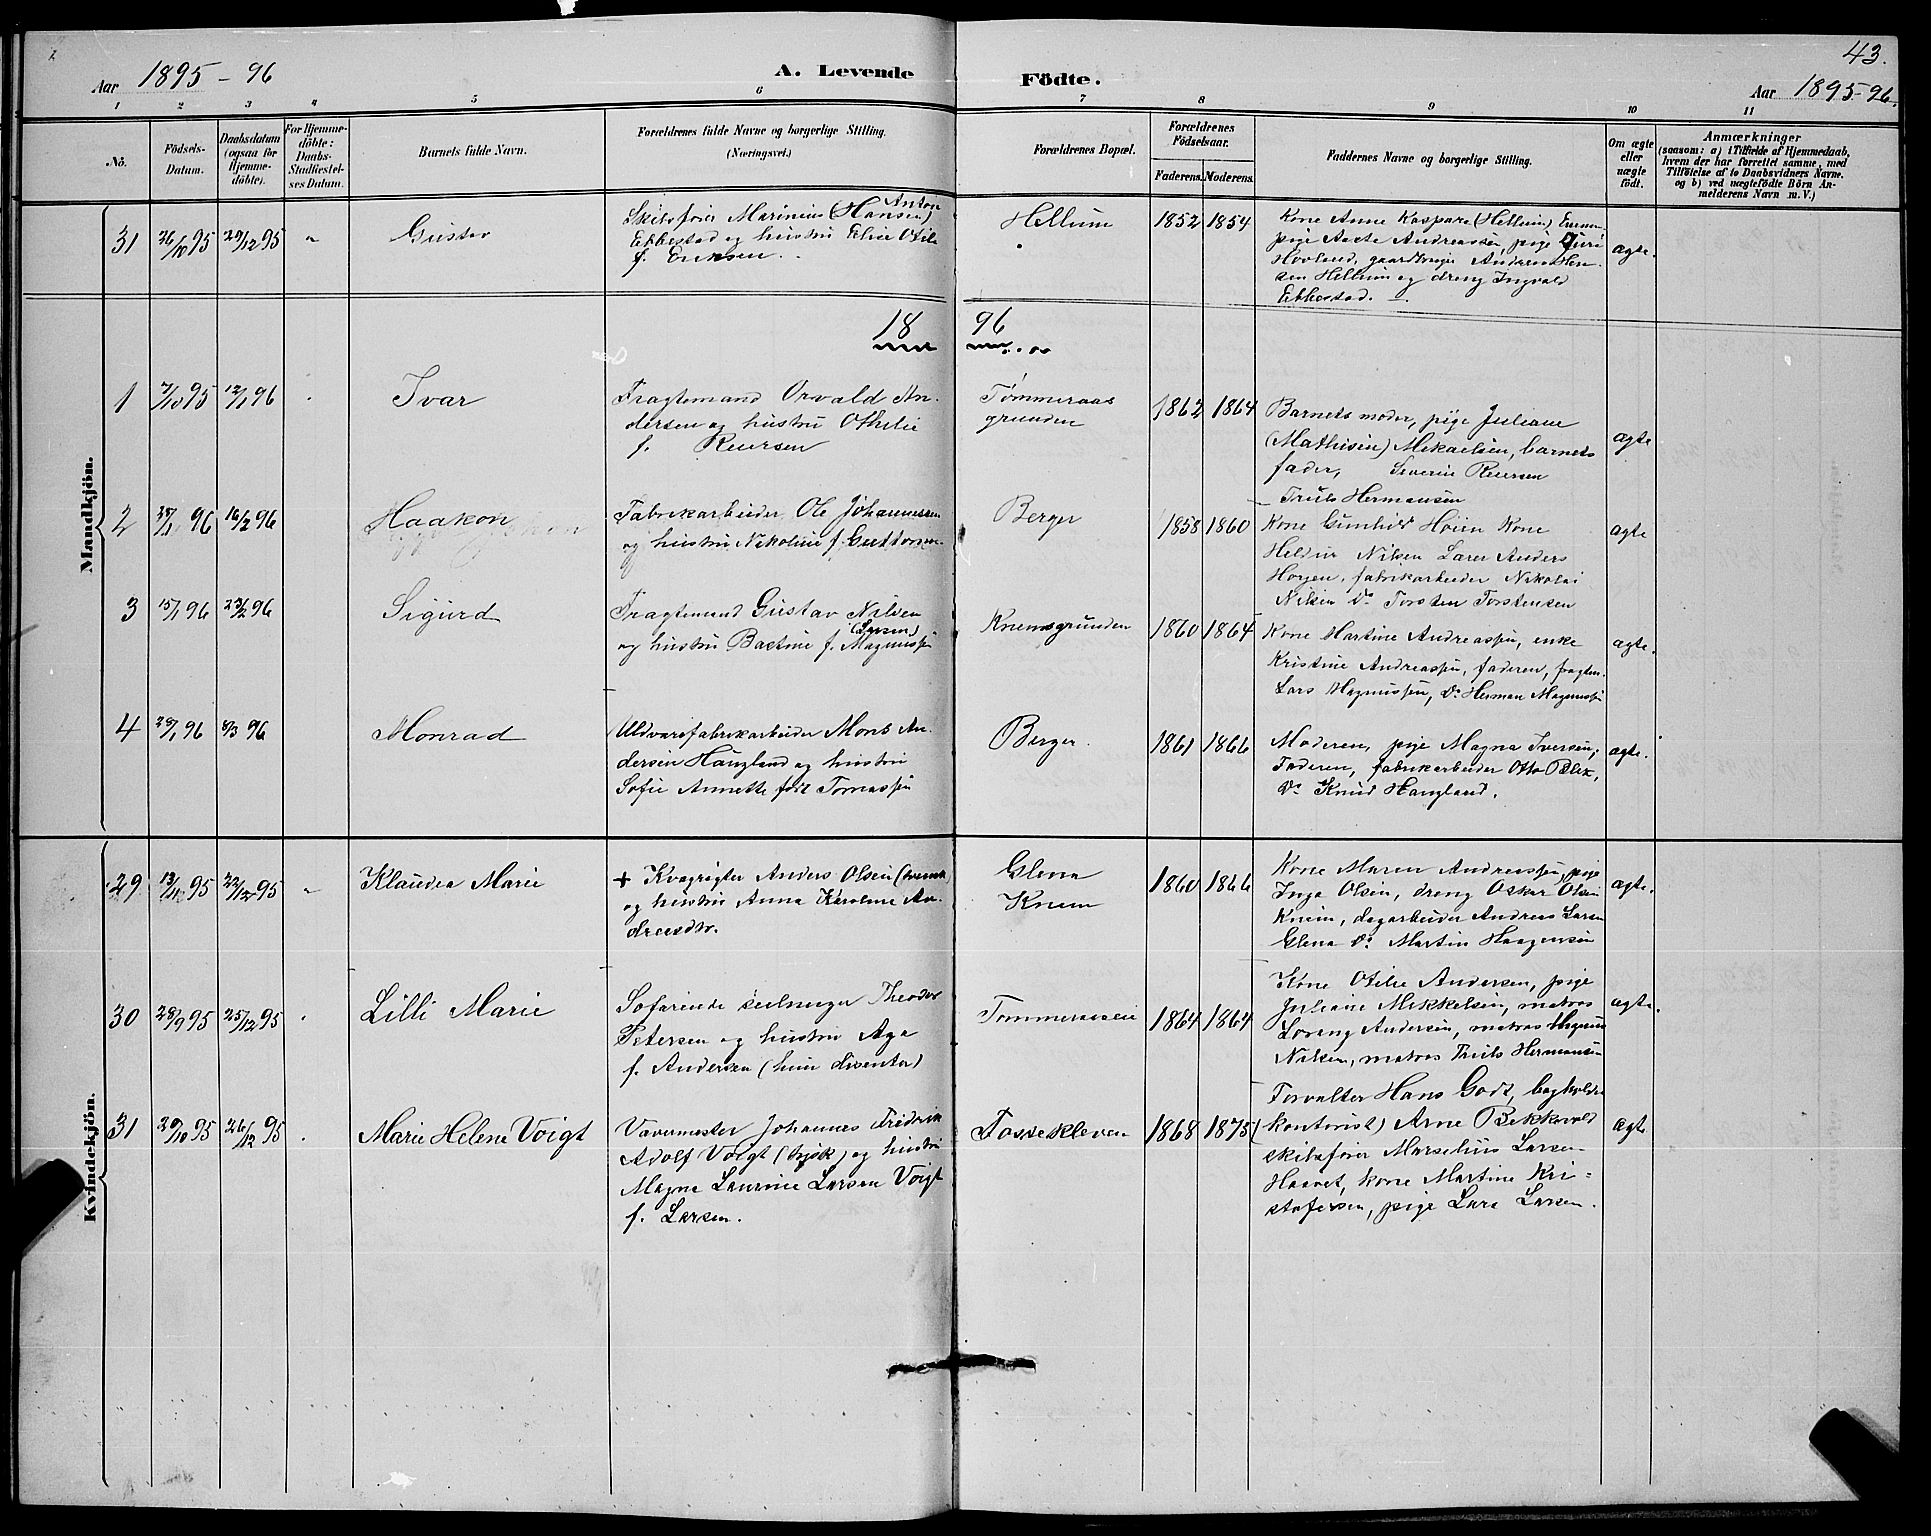 43.
Aar 1895-96 A. Levende Födte. Aar 1895-96.
1 2 3 4 5 6 7 8 9 10 11
No.
Födsels-
Datum.
Daabsdatum
(ogsaa for
Hjemme-
döbte).
For Hjemme-
döbte:
Daabs-
Stadfæstel-
ses Datum.
Barnets fulde Navn.
Forældrenes fulde Navne og borgerlige Stilling.
(Næringsvei.)
Forældrenes Bopæl.
Forældrenes
Födselsaar.
Faderens. Moderens.
Faddernes Navne og borgerlige Stilling.
Om ægte
eller
uægte
födt.
Anmærkninger
(saasom: a) i Tilfælde af Hjemmedaab,
hvem der har forrettet samme, med
Tilföielse af to Daabsvidners Navne.
og b) ved uægtefödte Börn An-
melderens Navn m. V.)
Mandkjön.
31 26/10 95 29/12 95 " Gustav
Skibsfører Marinius (Hansen) Anton
Ekkestad og hustru Elise Otil
f. Eriksen.
Hellum
1852 1854
Kone Anne Kaspara (Hellum)
pige Aaste Andreassen, pige Juri
Hovland, gaardbruger Anders Han-
sen Hellum og dreng Ingvald
Ekkestad.
ægte.
18 96
1 7/10 95 12/1 96 Ivar
Fragtemand Orvald An-
dersen og hustru Othelie
f. Reiersen
Tømmeraas
grunden
1862 1864
Barnets moder, pige Juliane
(Mathisen) Mekaelsen, barnets
fader, Severin Reiersen
Truls Hermansen
ægte
2 27/1 96 16/2 96 Haakon
Fabrikarbeider Ole Johannessen
og hustru Nikoline f. Guttorm
Berger
1858 1860
Kone Gunhild Høien Kone
Nilsen Lærer Anders
Hoyen, fabrikarbeider Nikolai
Nilsen Do Torsten Torstensen
ægte
3 15/1 96 23/2 96 Sigurd
Fragtemand Gustav Nilsen
og hustru Bastine f. (Larsen) Magnussen
Knemsgrunden
1860 1864
Kone Martine Andreassen, enke
Kristine Andreassen, faderen, fragtem.
Lars Magnussen, Do Herman Magnussen
ægte.
4 29/1 96 8/3 96 Monrad
Uldvarefabrikarbeider Mons An-
dersen Haugland og hustru
Sofie Annette født Tomassen
Berger.
1861 1866
Moderen, pige Magna Iversen,
Faderen, fabrikarbeider Otto Blix,
Do Knud Haugland.
ægte.
Kvindekjön.
29 13/11 95 22/12 95 " Klaudea Marie
+ Kvægrøgter Anders Olsen (svensk)
og hustru Anna Karoline An-
dreasdtr.
Glena
Knem
1860 1866
Kone Maren Andreassen, pige
Inga Olsen, dreng Oskar Olsen
Knem, dagarbeider Andreas Larsen
Glena Do Martin Haagensen
ægte.
30 28/9 95 25/12 95 Lilli Marie
Sofarende Theodor
Petersen og hustru Aga
f. Andersen (hun dissenter)
Tommeraasen
1864 1864
Kone Otilie Andersen, pige
Juliane Mikkelsen, matros
Lorang Andersen, matros Magnus
Nilsen, matros Truls Hermansen
ægte.
31 29/10 95 26/12 95 Marie Helene Voigt
Vævermester Johannes Fredrik
Adolf Voigt (tysk) og hustru
Magna Laurine Larsen Voigt
f. Larsen.
Fossekleven
1868 1875
Forvalter Hans Godt, bogholder
(kontorist) Arne Bekkevold
skibsfører Marselius Larsen
Haavet, kone Martine Kri-
stofersen, pige Lara Larsen.
ægte